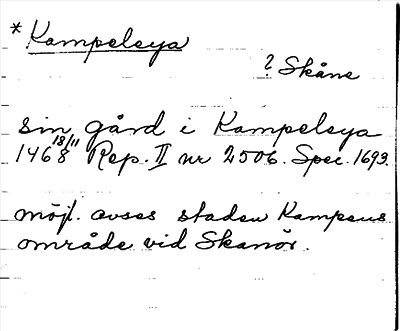 * Kampelsya
? Skåne
sin gård i Kampelsya
1468 18/11 Rep. II nr 2506. Spec. 1693.
möjl. avses staden Kampens
område vid Skanör.